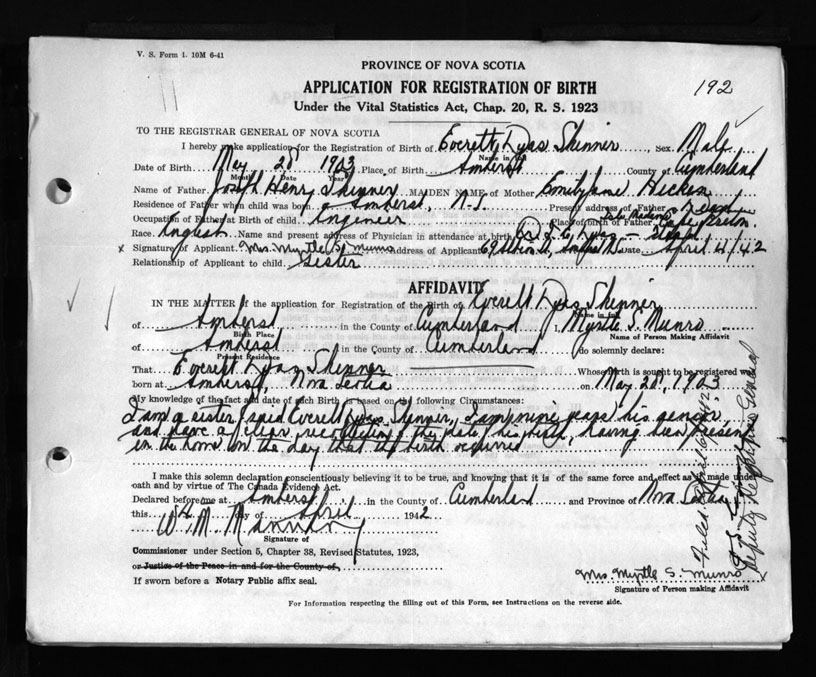 V. S. Form 1. 10M 6-41
PROVINCE OF NOVA SCOTIA
APPLICATION FOR REGISTRATION OF BIRTH
192
Under the Vital Statistics Act, Chap. 20, R. S. 1923
TO THE REGISTRAR GENERAL OF NOVA SCOTIA
I hereby make application for the Registration of Birth of Everett Dyas Skinner, Sex Male
Name in full
Date of Birth May 28 1903 Place of Birth Amherst County of Cumberland
Month Date Year
Name of Father Joseph Henry Skinner MAIDEN NAME of Mother Emily Jane Hicken
Residence of Father when child was born Amherst, N.S. Present address of Father
Occupation of Father at Birth of child Engineer Place of birth of Father Cape Breton
Race English Name and present address of Physician in attendance at birth
x Signature of Applicant Mrs. Myrtle S. Munro Address of Applicant Date April 4/42
Relationship of Applicant to child Sister
AFFIDAVIT
IN THE MATTER of the application for Registration of the Birth of Everett Dyas Skinner
Name in full
of Amherst in the County of Cumberland I, Myrtle S. Munro
Birth Place Name of Person Making Affidavit
of Amherst in the County of Cumberland do solemnly declare:
Present Residence
That Everett Dyas Skinner Whose birth is sought to be registered was
born at Amherst, Nova Scotia on May 28, 1903
My knowledge of the fact and date of such Birth is based on the following Circumstances:
I am a sister of said Everett Dyas Skinner, I am nine years his senior,
and have a clear recollection of the date of his birth, having been present
in the home on the day that the birth occurred
I make this solemn declaration conscientiously believing it to be true, and knowing that it is of the same force and effect as if made under
oath and by virtue of The Canada Evidence Act.
Declared before me at Amherst in the County of Cumberland and Province of Nova Scotia
this day of April 1942
Signature of
Commissioner under Section 5, Chapter 38, Revised Statutes, 1923,
or Justice of the Peace in and for the County of
If sworn before a Notary Public affix seal.
Mrs. Myrtle S. Munro x
Signature of Person making Affidavit
For Information respecting the filling out of this Form, see Instructions on the reverse side.
Deputy Registrar General